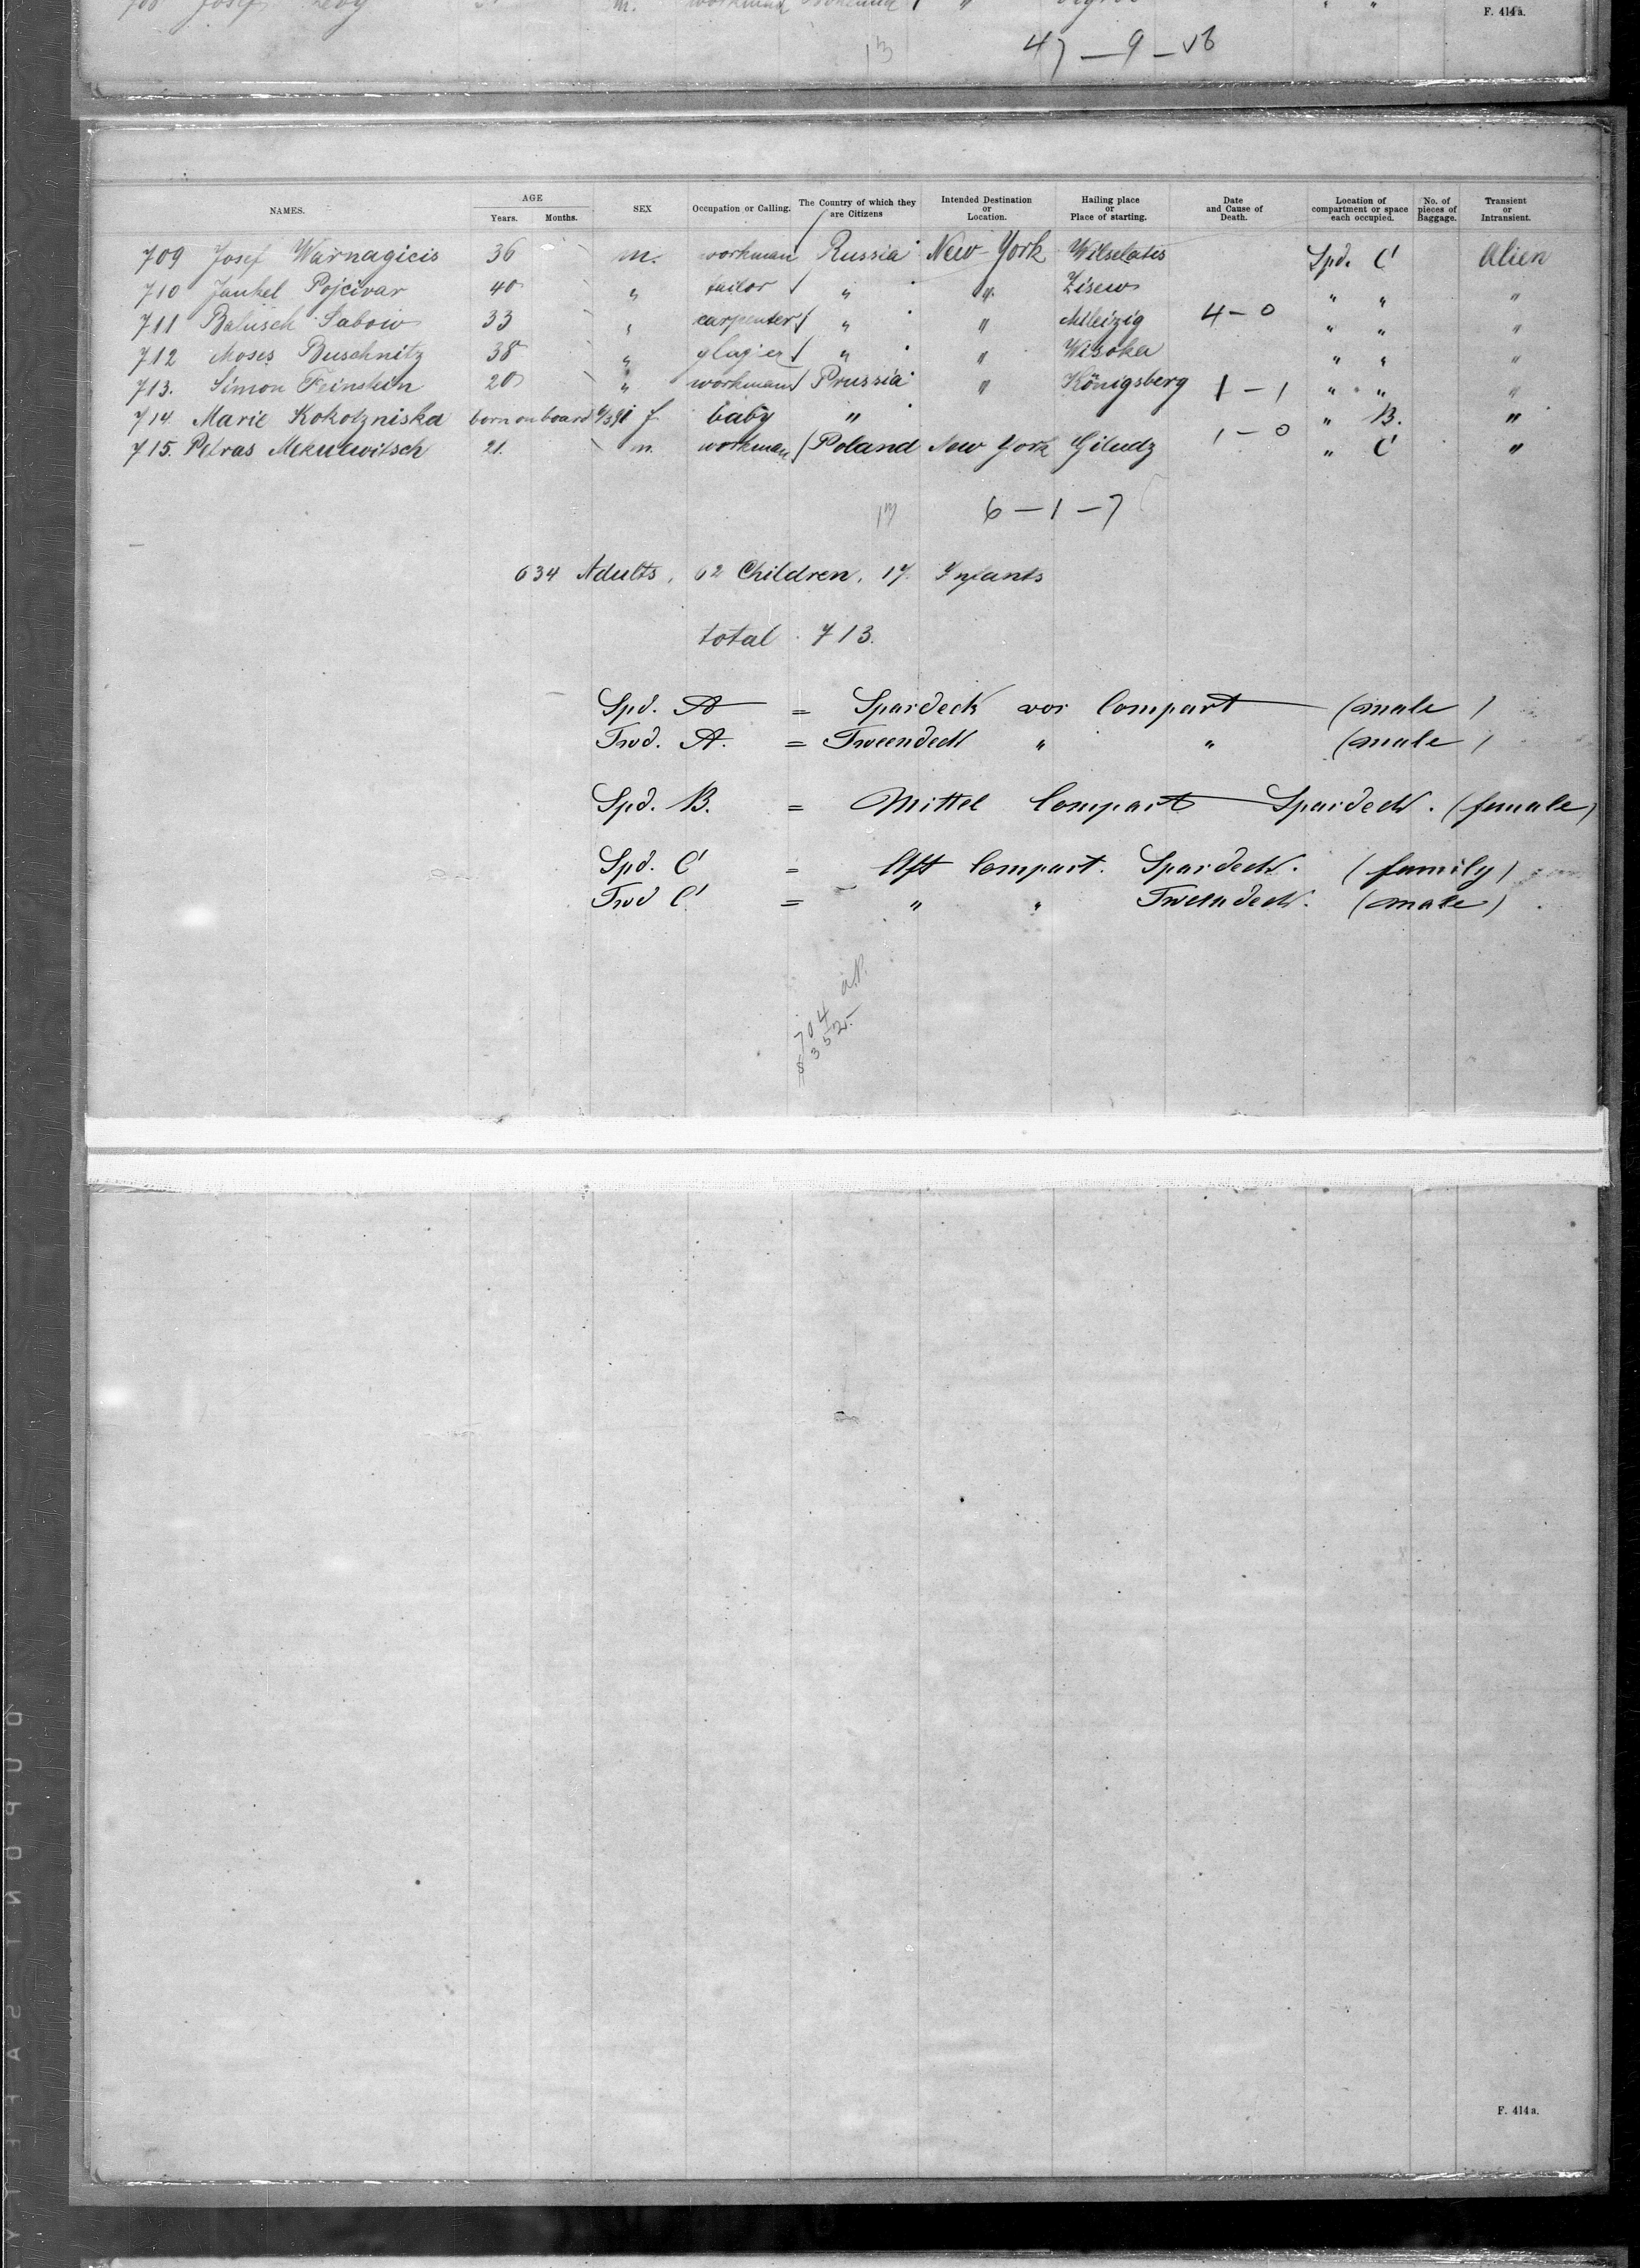 708 Josef Levy m. workman Bohemia "
F. 414a.
47 — 9 — 56
NAMES. AGE Years. Months. SEX Occupation or Calling. The Country of which they are Citizens Intended Destination or Location. Hailing place or Place of starting. Date and Cause of Death. Location of compartment or space each occupied. No. of pieces of Baggage. Transient or Intransient.
709 Josef Warnagicis 36 m. workman Russia New-York Wilselatis Spd. C Alien
710 Jankel Pojcivar 40 " tailor " " Zisew " " "
711 Balusch Sabow 33 " carpenter " " Mleizig 4 – 0 " " "
712 Moses Buschnitz 38 " glazier " " Wisoka " " "
713. Simon Feinstein 20 " workman Prussia " Königsberg 1 – 1 " " "
714. Marie Kokotzniska born on board f baby " " B. "
715. Petras Mekulewitsch 21. m. workman Poland New York Giludz 1 – 0 " C "
6 — 1 — 7
634 Adults, 62 Children, 17. Infants
total 713.
Spd. A = Spardeck vor Compart (male)
Twd. A. = Tweendeck " " (male)
Spd. B. = Mittel Compart Spardeck. (female)
Spd. C = Aft Compart. Spardeck. (family)
Twd C = " " Tweendeck. (male)
704 a.P.
$ 352.–
F. 414a.